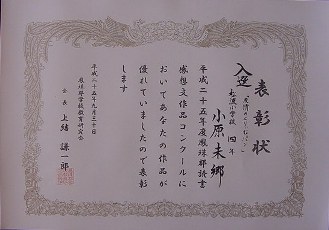 表彰状
入選
小学校 四年
小原未郷
平成二十五年度鳳珠郡読書
感想文作品コンクールに
おいてあなたの作品が
優れていましたので表彰
します
平成二十五年九月三十日
鳳珠郡学校教育研究会
会長 上結謙一郎